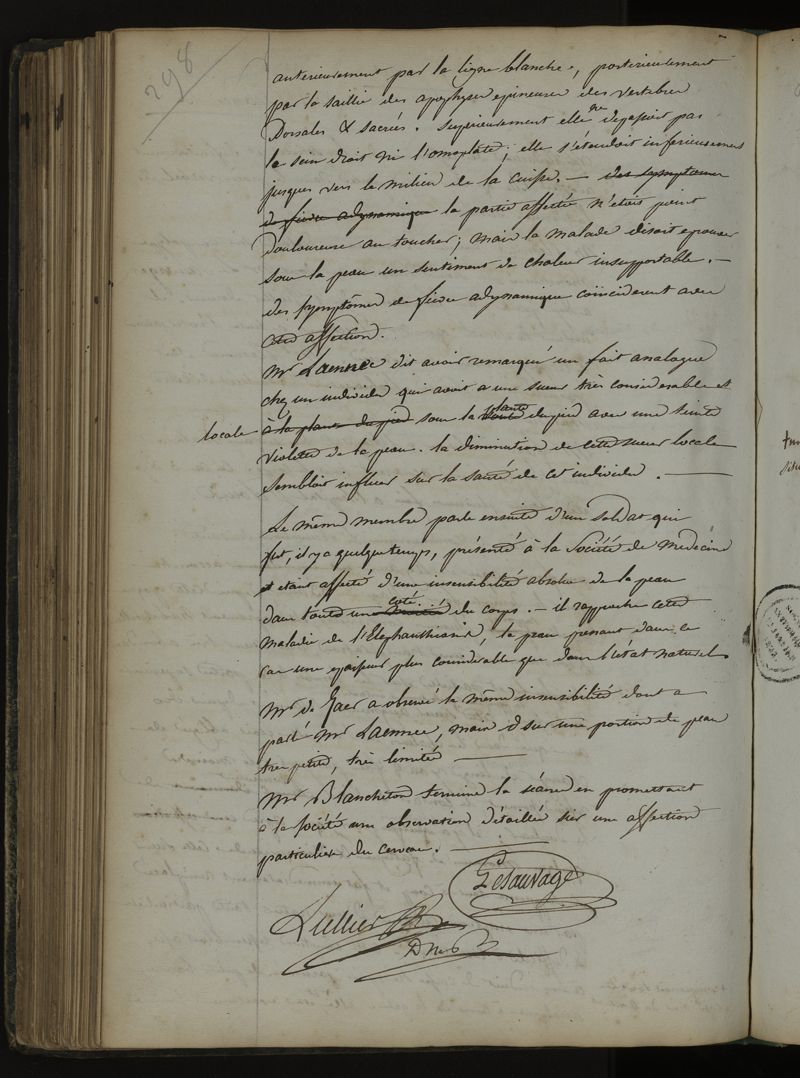 298
antérieurement par la ligne blanche, postérieurement
par la saillie des apophyses epineuses des vertebres
Dorsales & sacrées. Supérieurement elle ne dépassoit pas
le sein droit ni l'omoplate; elle s'étendoit inférieurement
jusques vers le milieu de la cuisse. — des symptomes
de fievre adynamique la partie affectée n'étoit point
douloureuse au toucher; mais la malade disoit eprouver
sous la peau un sentiment de chaleur insupportable. —
des symptômes de fievre adynamique coïncidèrent avec
cette affection.
Mr Laennec dit avoir remarqué un fait analogue
chez un individu qui avoit une sueur très considérable et
locale à la plante du pied sous la plante du pied avec une teinte
violette de la peau. la diminution de cette sueur locale
sembloit influer sur la santé de cet individu. —
Le même membre parle ensuite d'un soldat qui
fut, il y a quelque temps, présenté à la Société de Medecine
et étant affecté d'une insensibilité absolue de la peau
dans tout un coté du corps. — il rapproche cette
maladie de l'Elephanthiasis, la peau prenant dans ce
cas une epaisseur plus considerable que dans l'état naturel
Mr de Gaer a observé la même insensibilité dont a
parlé Mr Laennec, mais sur une portion de peau
très petite, très limitée —
Mr Blancheton termine la séance en promettant
à la Société une observation détaillée sur une affection
particulière du cerveau. —
Lesauvage
Lullier